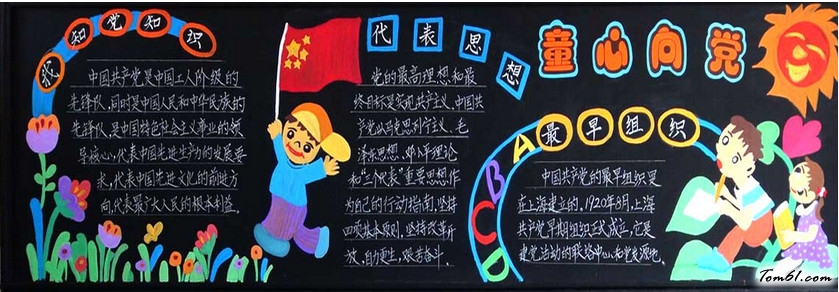 我知党知识
中国共产党是中国工人阶级的
先锋队,同时是中国人民和中华民族的
先锋队,是中国特色社会主义事业的领
导核心,代表中国先进生产力的发展要
求,代表中国先进文化的前进方
向,代表最广大人民的根本利益。
代表思想
党的最高理想和最
终目标是实现共产主义,中国共
产党以马克思列宁主义、毛
泽东思想、邓小平理论
和"三个代表"重要思想作
为自己的行动指南,坚持
四项基本原则,坚持改革开
放,自力更生,艰苦奋斗。
童心向党
ABCD
最早组织
中国共产党的最早组织是
在上海建立的。1920年8月,上海
共产党早期组织正式成立,它是
建党活动的联络中心和发源地。
Tom61.com